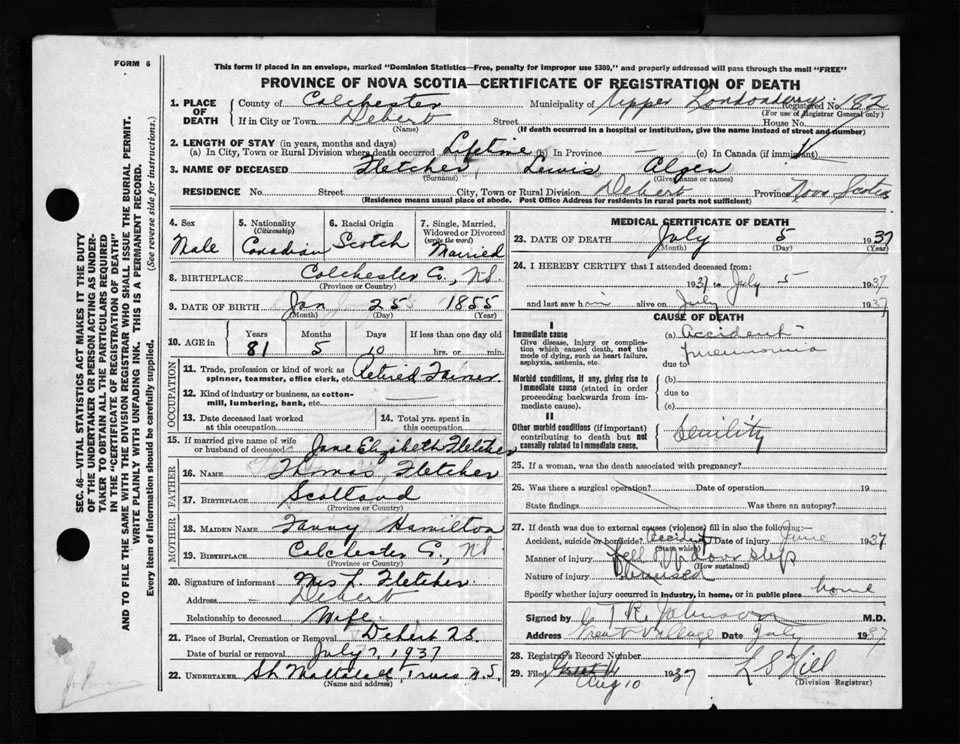 FORM 6
This form if placed in an envelope, marked "Dominion Statistics—Free, penalty for improper use $300," and properly addressed will pass through the mail "FREE"
PROVINCE OF NOVA SCOTIA—CERTIFICATE OF REGISTRATION OF DEATH
1. PLACE OF DEATH County of Colchester Municipality of Upper Londonderry Registered No. 182
(For use of Registrar General only)
If in City or Town Debert Street House No.
(Name) (If death occurred in a hospital or institution, give the name instead of street and number)
2. LENGTH OF STAY (in years, months and days)
(a) In City, Town or Rural Division where death occurred Lifetime (b) In Province — (c) In Canada (if immigrant)
3. NAME OF DECEASED Fletcher, Lewis
(Surname) (Given name or names)
RESIDENCE No. Street City, Town or Rural Division Debert Province Nova Scotia
(Residence means usual place of abode. Post Office Address for residents in rural parts not sufficient)
4. Sex Male
5. Nationality (Citizenship) Canadian
6. Racial Origin Scotch
7. Single, Married, Widowed or Divorced (write the word) Married
8. BIRTHPLACE Colchester Co., NS
(Province or Country)
9. DATE OF BIRTH Jan 25 1855
(Month) (Day) (Year)
10. AGE in Years Months Days If less than one day old
81 5 10 hrs. or min.
OCCUPATION
11. Trade, profession or kind of work as spinner, teamster, office clerk, etc. Retired Farmer
12. Kind of industry or business, as cotton-mill, lumbering, bank, etc. —
13. Date deceased last worked at this occupation
14. Total yrs. spent in this occupation
15. If married give name of wife or husband of deceased Jane Elizabeth Fletcher
FATHER
16. NAME Thomas Fletcher
17. BIRTHPLACE Scotland
(Province or Country)
MOTHER
18. MAIDEN NAME Fanny Hamilton
19. BIRTHPLACE Colchester Co., NS
(Province or Country)
20. Signature of informant Mrs L. Fletcher
Address Debert
Relationship to deceased Wife
21. Place of Burial, Cremation or Removal Debert NS.
Date of burial or removal July 7, 1937
22. UNDERTAKER Truro N.S.
(Name and Address)
MEDICAL CERTIFICATE OF DEATH
23. DATE OF DEATH July 5 1937
(Month) (Day) (Year)
24. I HEREBY CERTIFY that I attended deceased from:
1937 to July 5 1937
and last saw him alive on July 1937
CAUSE OF DEATH
I
Immediate cause (a) Accident
Give disease, injury or complication which caused death, not the mode of dying, such as heart failure, asphyxia, asthenia, etc.
pneumonia
due to
Morbid conditions, if any, giving rise to immediate cause (stated in order proceeding backwards from immediate cause). (b)
due to
(c)
II
Other morbid conditions (if important) contributing to death but not causally related to immediate cause. Senility
25. If a woman, was the death associated with pregnancy?
26. Was there a surgical operation? Date of operation 19
State findings Was there an autopsy?
27. If death was due to external causes (violence) fill in also the following:
Accident, suicide or homicide? Accident Date of injury June 1937
(State which)
Manner of injury fell off door step
(How sustained)
Nature of injury bruised
Specify whether injury occurred in industry, in home, or in public place home
Signed by T. R. Johnson M.D.
Address Great Village Date July 1937
28. Registrar's Record Number
29. Filed Aug 10 1937 L S Hill
(Division Registrar)
SEC. 46—VITAL STATISTICS ACT MAKES IT THE DUTY
OF THE UNDERTAKER OR PERSON ACTING AS UNDER-
TAKER TO OBTAIN ALL THE PARTICULARS REQUIRED
IN THE "CERTIFICATE OF REGISTRATION OF DEATH"
AND TO FILE THE SAME WITH THE DIVISION REGISTRAR WHO SHALL ISSUE THE BURIAL PERMIT.
WRITE PLAINLY WITH UNFADING INK. THIS IS A PERMANENT RECORD.
Every item of information should be carefully supplied. (See reverse side for instructions.)